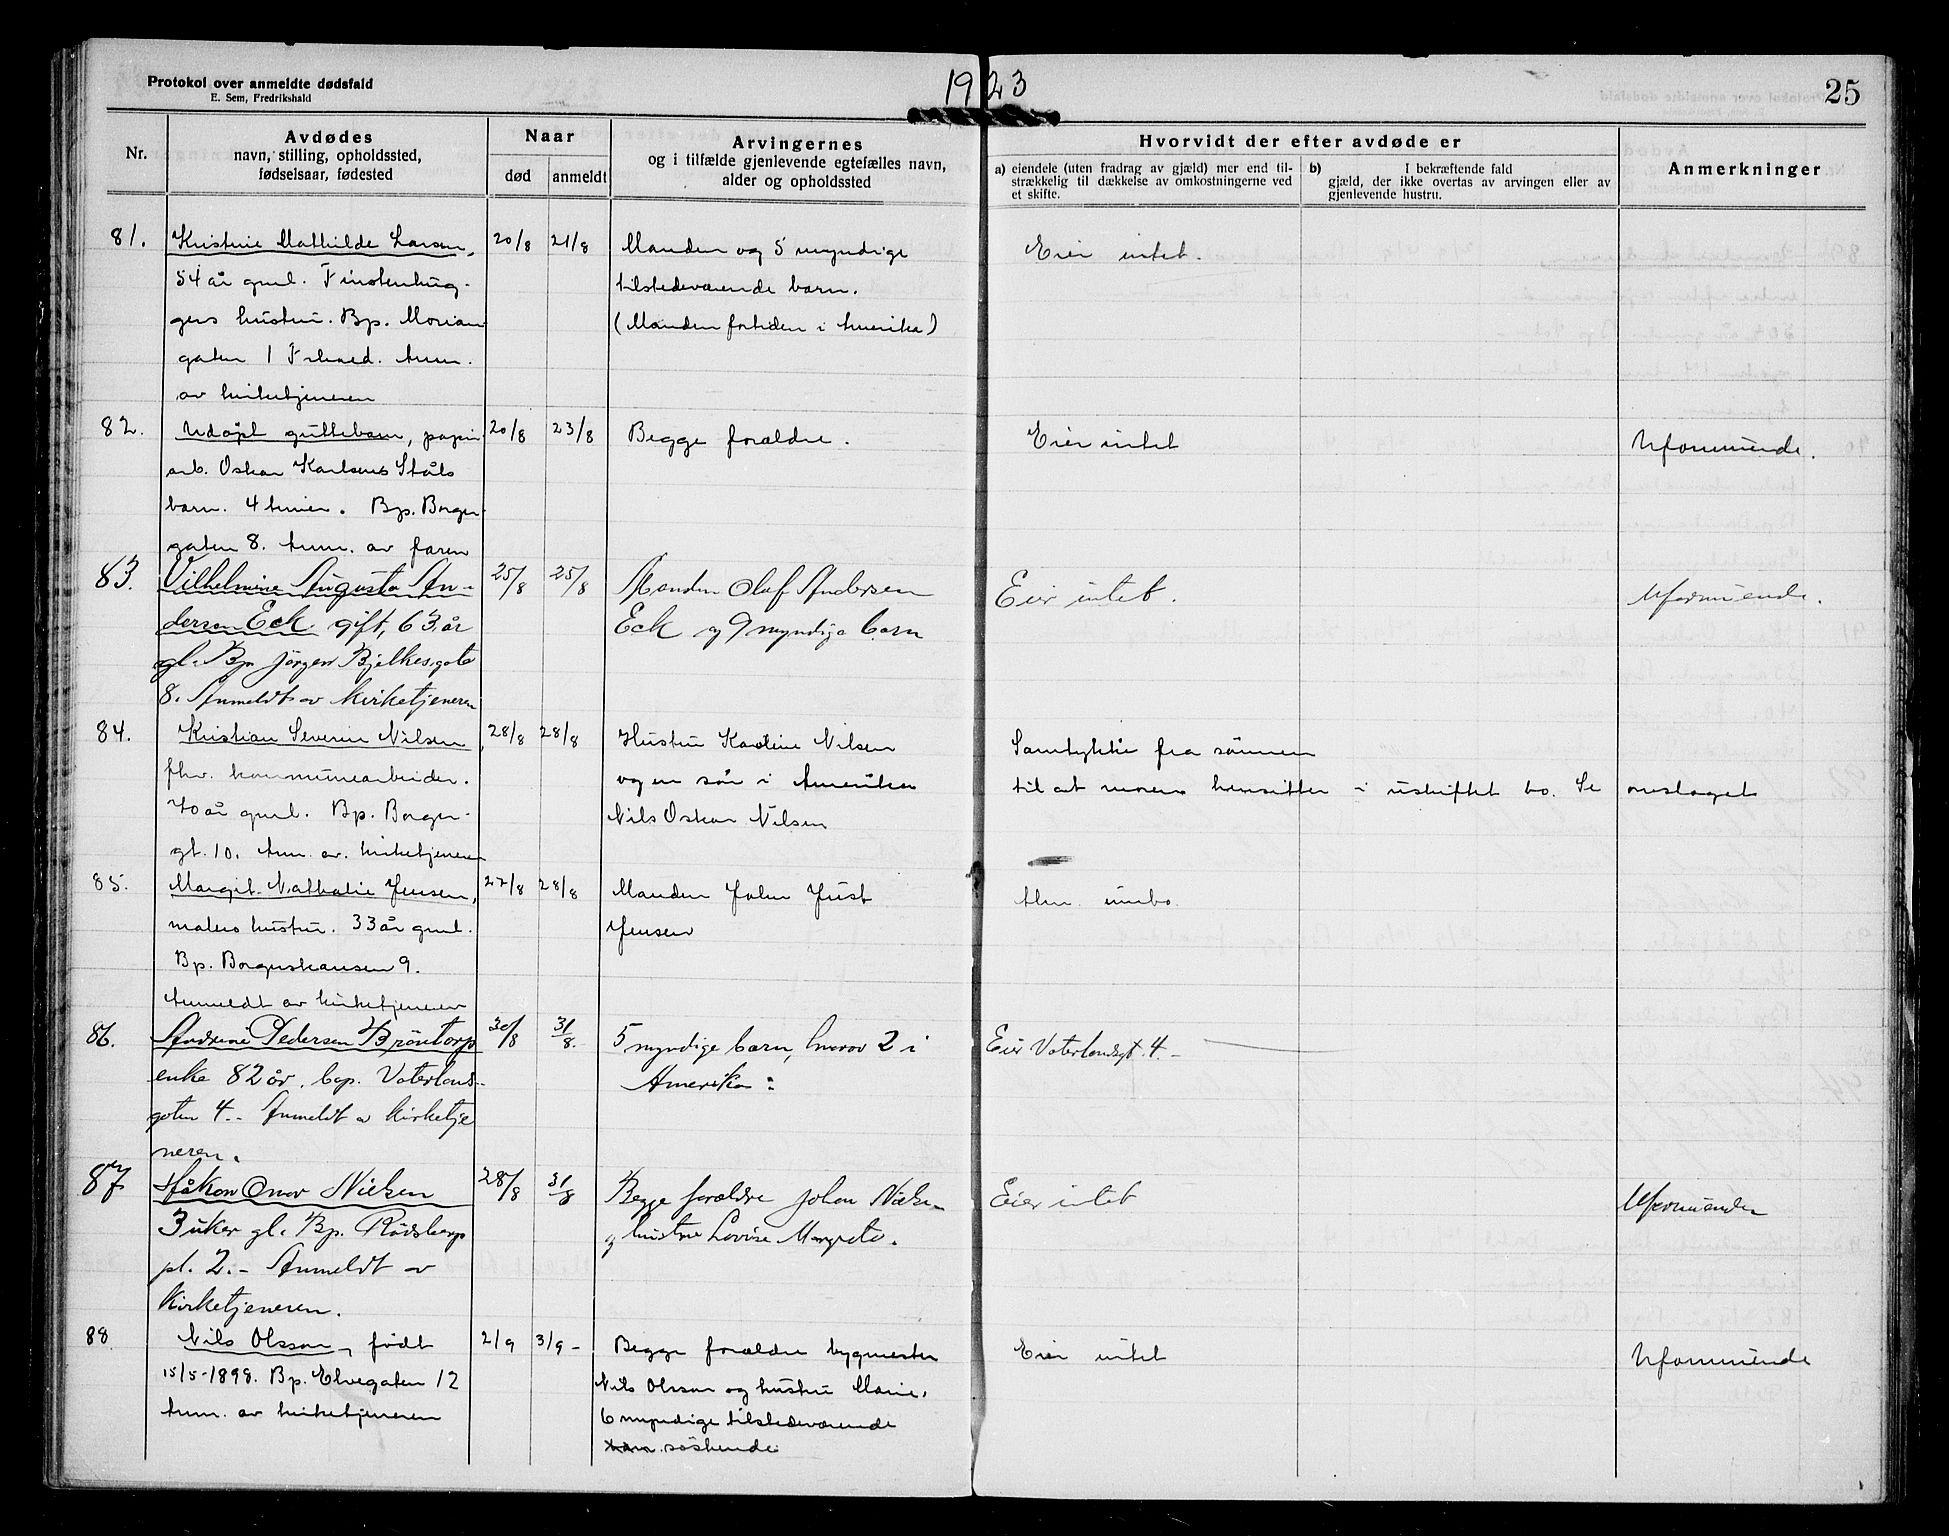 Protokol over anmeldte dødsfald
E. Sem, Fredrikshald
1923
25
Nr.
Avdødes
navn, stilling, opholdssted,
fødselsaar, fødested
Naar
død
anmeldt
Arvingernes
og i tilfælde gjenlevende egtefælles navn,
alder og opholdssted
Hvorvidt der efter avdøde er
a) eiendele (uten fradrag av gjæld) mer end til-
strækkelig til dækkelse av omkostningerne ved
et skifte.
b) I bekræftende fald
gjæld, der ikke overtas av arvingen eller av
gjenlevende hustru.
Anmerkninger
81.
Kristine Mathilde Larsen,
54 år gml. Finstenhug-
gers hustru. Bp. Morian-
gaten 1 Frhned. Anm.
av kirketjeneren
20/8
21/8
Manden og 5 myndige
tilstedeværende barn.
(Manden fortiden i Amerika)
Eier intet.
82.
Udøpt guttebarn, papir-
arb. Oskar Karlsens Ståls
barn. 4 timer. Bp. Borger-
gaten 8. Anm. av faren
20/8
23/8
Begge forældre.
Eier intet
Uformuende.
83.
Vilhelmine Augusta An-
dersen Eck gift, 63 år
gl. Bp Jørgen Bjelkesgate
8. Anmeldt av Kirketjeneren
25/8
25/8
Manden Olaf Andersen
Eck og 9 myndige barn
Eier intet.
Uformuende.
84.
Kristian Severin Nilsen
fhv. kommunearbeider.
70 år gml. Bp. Borger-
gt. 10. Anm. av. kirketjeneren
28/8
28/8
Hustru Karoline Nilsen
og en søn i Amerika
Nils Oskar Nilsen
Samtykke fra sønnen
til at moren hensitter i uskiftet bo. Se omslaget
85.
Margit Nathalie Jensen,
malers hustru. 33 år gml.
Bp. Borgerskansen 9.
Anmeldt av kirketjeneren
27/8
28/8
Manden John Just
Jensen
Alm. uimbo.
86.
Andrine Pedersen Brøntorp
enke 82 år, bop. Vaterlands-
gaten 4.- Anmeldt av Kirketje
neren.
30/8
31/8.
5 myndige barn, hvorav 2 i
Amerika:
Eier Vaterlandsgt. 4 -
87
Håkon Onar Nielsen
3 uker gl. Bp. Rødsberg
pl. 2.- Anmeldt av
Kirketjeneren.
28/8
31/8
Begge forældre Johan Nielsen
og hustru Lovise Margrete.
Eier intet
Uformuende
88
Nils Olsson, født
15/5-1898. Bp. Elvegaten 12
Anm. av kirketjeneren
2/9
3/9 -
Begge forældre bygmester
Nils Olsson og hustru Marie,
6 myndige tilstedeværende
barn. søskende
Eier intet
Uformuende